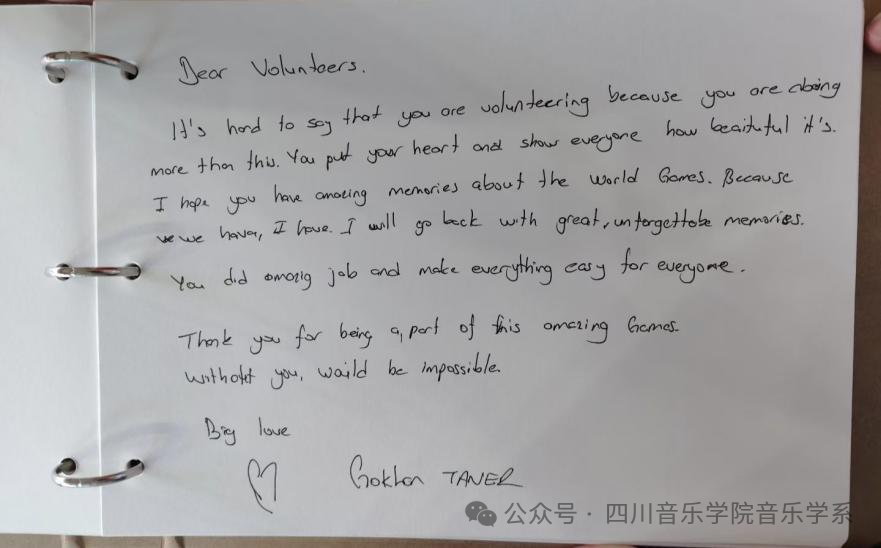 Dear Volunteers.
It's hard to say that you are volunteering because you are doing
more than this. You put your heart and show everyone how beaituful it's.
I hope you have amazing memories about the World Games. Because
we have, I have. I will go back with great, unforgettable memories.
You did amazig job and make everything easy for everyone.
Thank you for being a part of this amazing Games.
Without you, would be impossible.
Big love
Gokhan TANER
公众号 · 四川音乐学院音乐学系